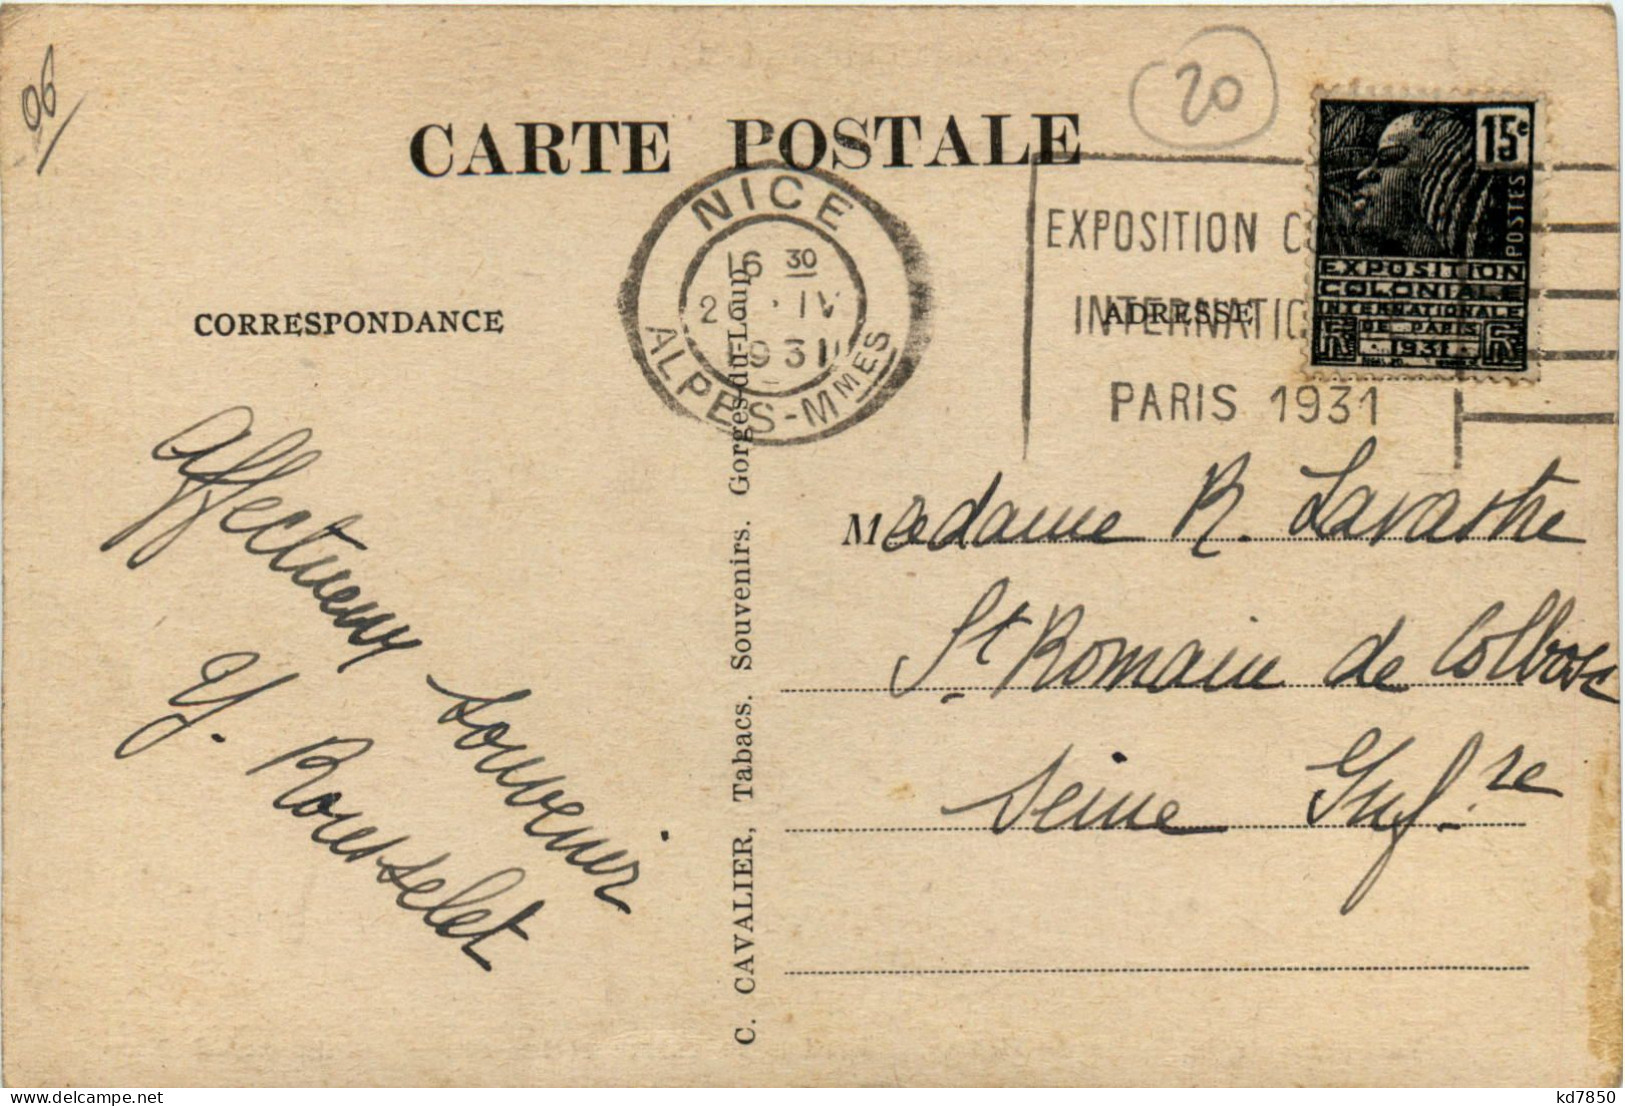 96
20
CARTE POSTALE
NICE
16 30
2 IV
1931
ALPES-MMES
EXPOSITION C
INTERNATIO
PARIS 1931
15c
POSTES
EXPOSITION
COLONIALE
INTERNATIONALE
DE PARIS
· 1931 ·
CORRESPONDANCE
ADRESSE
Affectueux souvenir
Y. Rousselet
C. CAVALIER, Tabacs. Souvenirs. Gorges-du-Loup
Madame R. Lavastre
St Romain de Colbosc
Seine Inf.re
kd7850